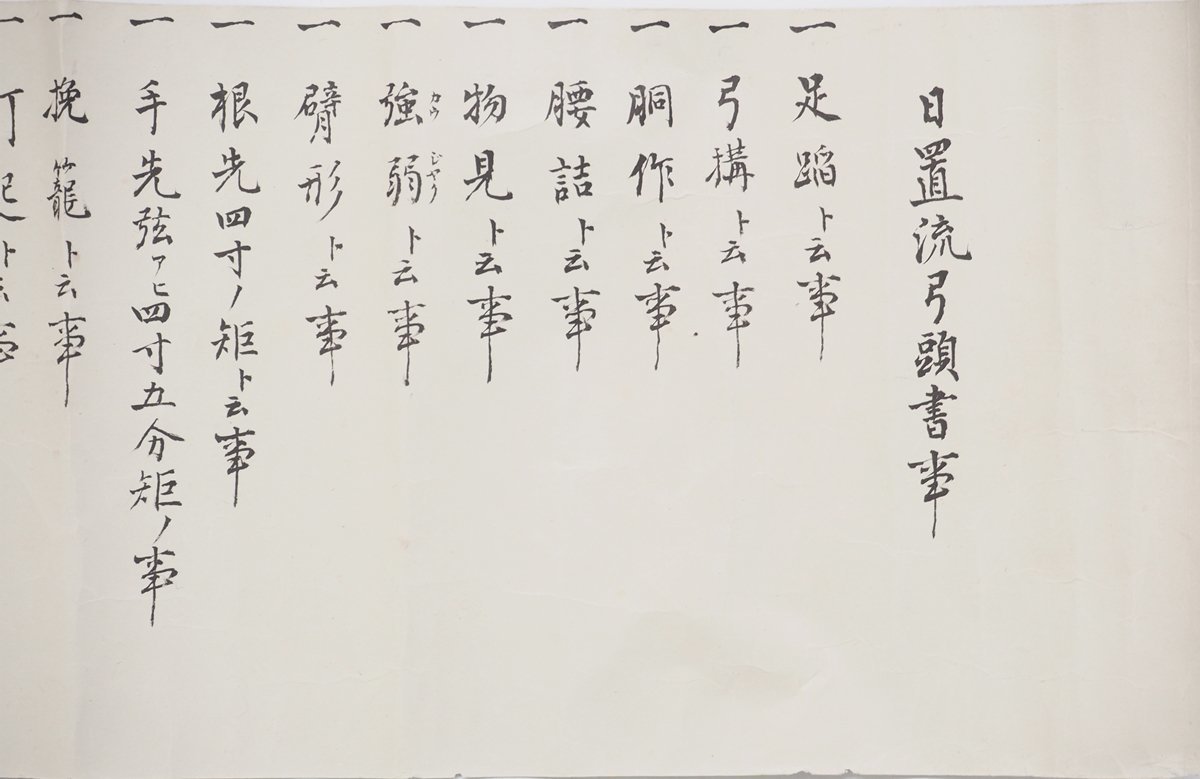 日置流弓頭書事
一 足蹈ト云事
一 弓搆ト云事
一 胴作ト云事
一 腰詰ト云事
一 物見ト云事
一 強弱ト云事
カウ ジヤク
一 臂形ト云事
一 根先四寸ノ矩ト云事
一 手先弦アヒ四寸五分矩ノ事
一 挽籠ト云事
一